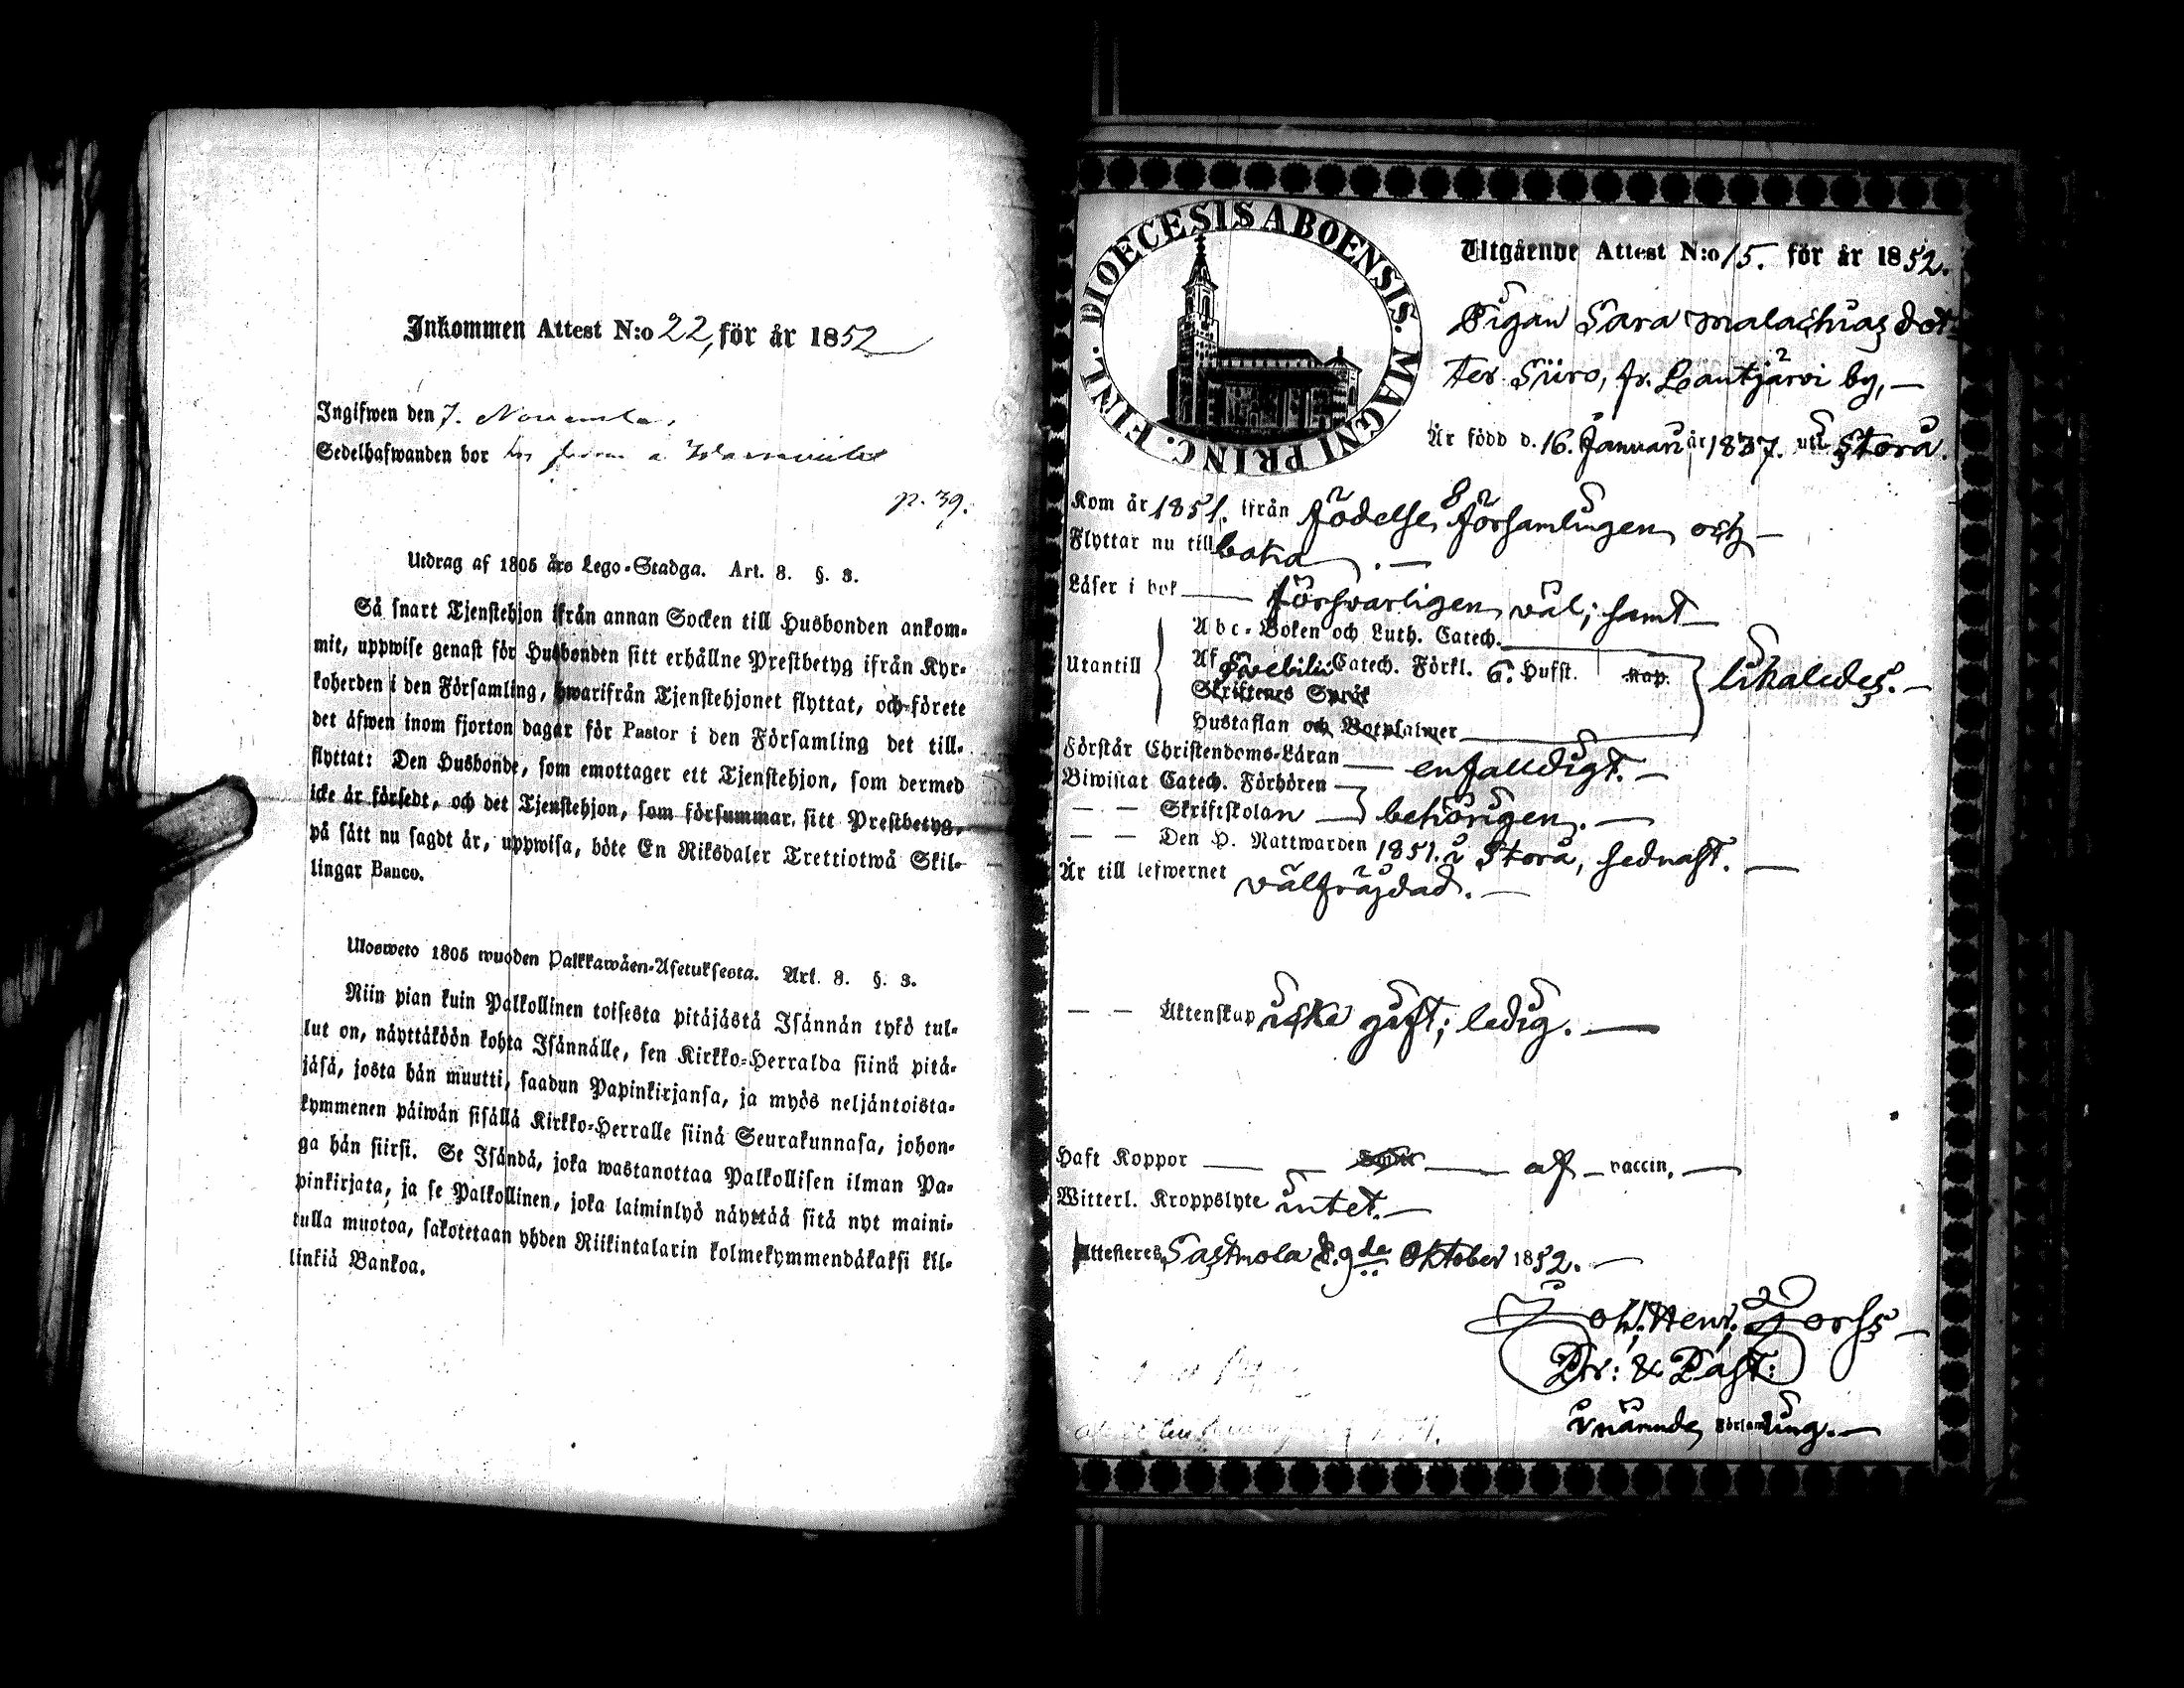 Inkommen Attest N:o 22, för år 1852
Ingifwen den 7. November
Sedelhafwanden bor hos
p. 39.
Utdrag af 1805 års Lego-Stadga. Art. 8. §. 3.
Så snart Tjenstehjon ifrån annan Socken till Husbonden ankom-
mit, uppwise genast för Husbonden sitt erhållne Prestbetyg ifrån Kyr-
koherden i den Församling, hwarifrån Tjenstehjonet flyttat, och förete
det åfwen inom fjorton dagar för Pastor i den Församling det till-
flyttat: Den Husbonde, som emottager ett Tjenstehjon, som dermed
icke år försedt, och det Tjenstehjon, som försummar, sitt Prestbetyg,
på sått nu sagdt år, uppwisa, böte En Riksdaler Trettiotwå Skil-
lingar Banco.
Ulosweto 1805 wuoden Palkkawåen-Asetuksesta. Art. 8. §. 3.
Niin pian kuin Palkollinen toisesta pitåjåstå Isånnån tykö tul-
lut on, nåyttåköön kohta Isånnålle, sen Kirkko-Herralda siinå pitå-
jåså, josta hån muutti, saadun Papinkirjansa, ja myös neljåntoista-
kymmenen påiwån sisållå Kirkko-Herralle siinå Seurakunnasa, johon-
ga hån siirsi. Se Isåndå, joka wastanottaa Palkollisen ilman Pa-
pinkirjata, ja se Palkollinen, joka laiminlyö nåyttåå sitå nyt maini-
tulla muotoa, sakotetaan yhden Riikintalarin kolmekymmendåkaksi kil-
linkiå Bankoa.
DIOECESIS ABOENSIS. MAGNI PRINC. FINL.
Utgående Attest N:o 15. för år 1852.
Pigan Sara Malachias dot-
ter Siiro, fr. Lautjärvi by,
Är född d. 16. Januari år 1837. uti Storå.
Kom år 1851. ifrån födelse församlingen och
Flyttar nu till
Låser i bok försvarligen väl; samt
Abc-Boken och Luth. Catech.
Utantill Af Svebilii Catech. Förkl. 6. Hufst. Kap. likaledes.
Skriftenes Språk
Hustaflan och Botpsalmer
Förstår Christendoms-Låran enfaldigt.
Biwistat Catech. Förhören
— — Skriftskolan behörigen.
— — Den H. Nattwarden 1851. i Storå, sednast.
Är till lefwernet välfräjdad.
— — Äktenskap icke gift; ledig.
Haft Koppor af vaccin.
Witterl. Kroppslyte intet.
Attesteres Sastmola d. 9de Oktober 1852.
Joh. Henr. Forss
Pr: & Past:
i nämnde Församling.